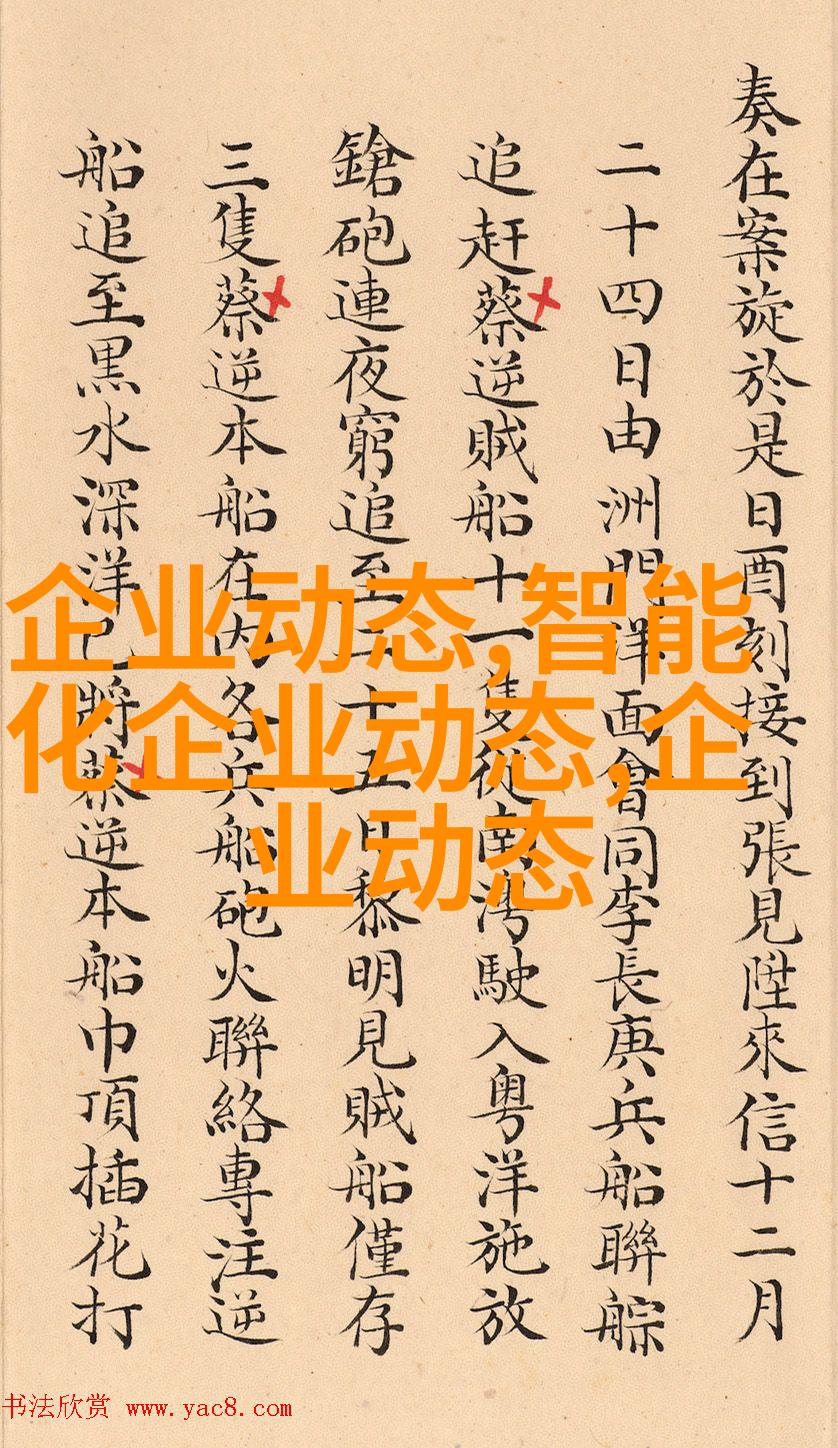 奏在案旋於是日酉刻接到張見陞來信十二月
二十四日由洲門洋面會同李長庚兵船聯䑸
追赶蔡逆賊船十一隻從南駛入粤洋施放
鎗砲連夜窮追至二十五日黎明見賊船僅存
三隻蔡逆本船在内各兵船砲火聯絡專注逆
船追至黒水深洋已將蔡逆本船巾頂插花打
企业动态,智能
化企业动态,企
业动态
书法欣赏 www.yac8.com